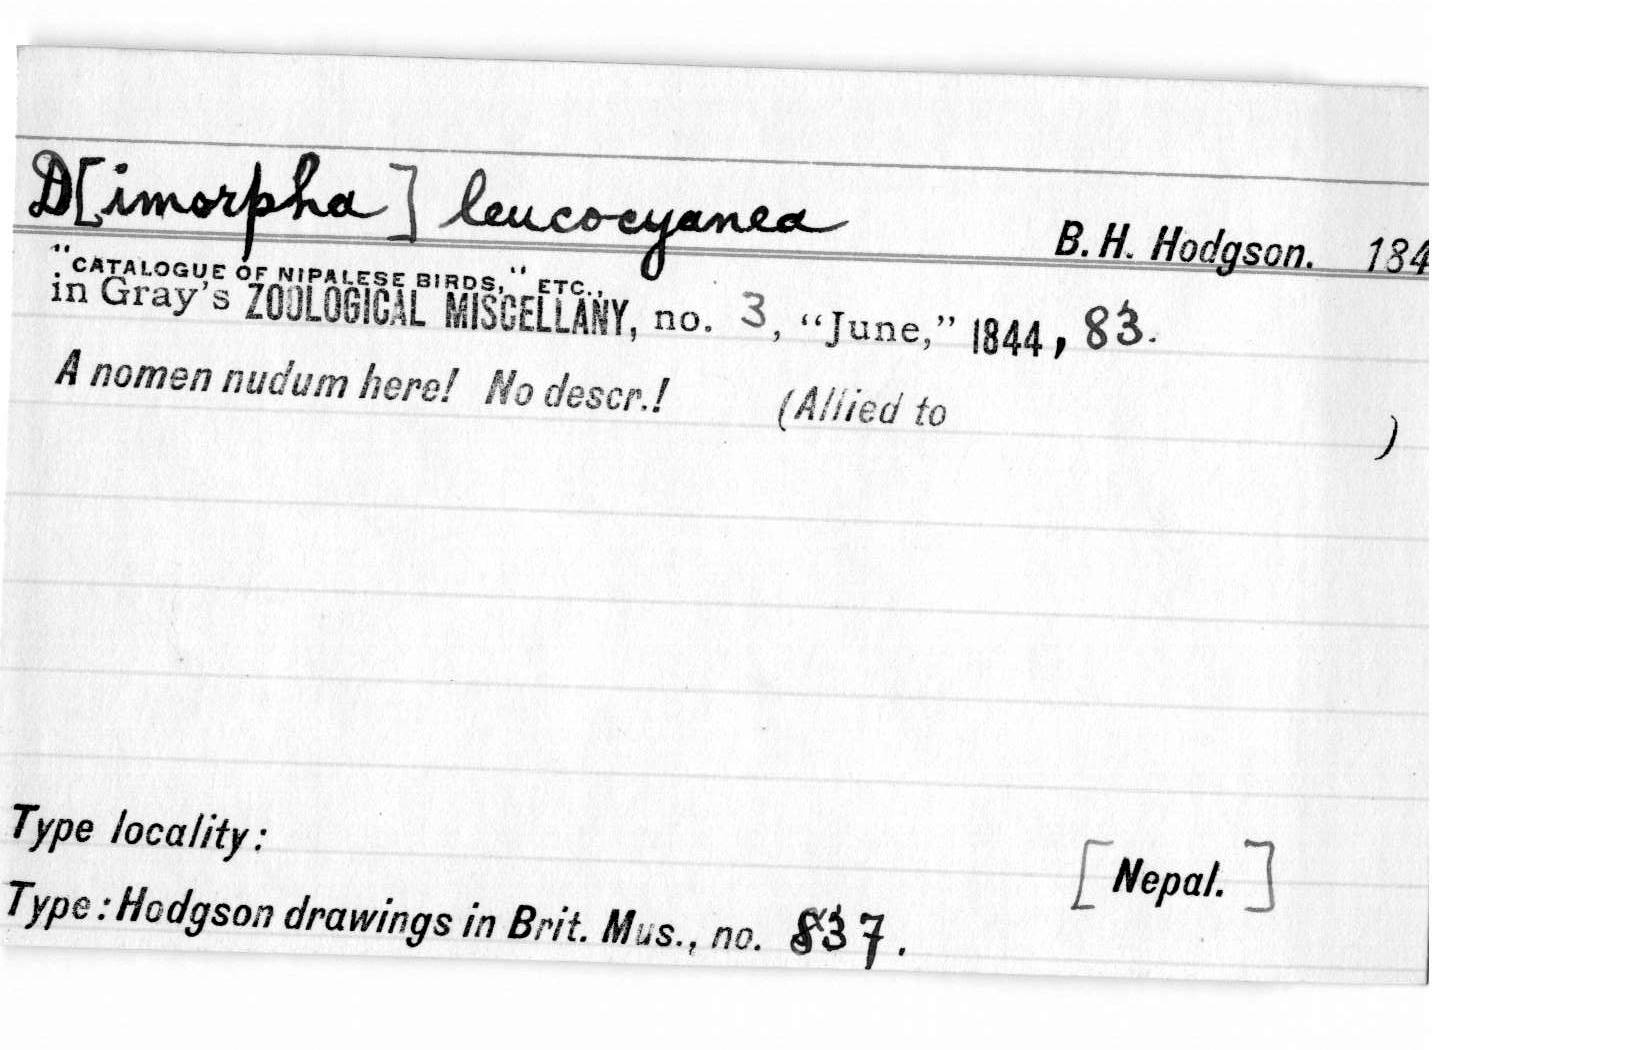 D[imorpha] leucocyanea
B. H. Hodgson. 184
"CATALOGUE OF NIPALESE BIRDS," ETC.,
in Gray's ZOOLOGICAL MISCELLANY, no. 3, "June," 1844, 83.
A nomen nudum here! No descr.! (Allied to )
Type locality: [Nepal.]
Type: Hodgson drawings in Brit. Mus., no. 837.